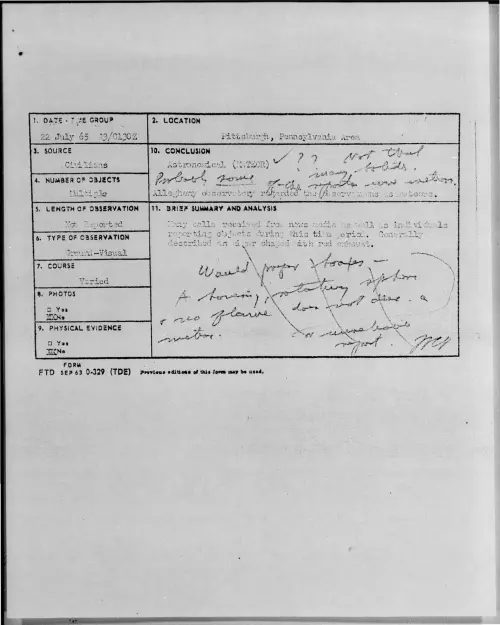 1. DATE - TIME GROUP
22 July 65 23/0130Z
2. LOCATION
Pittsburgh, Pennsylvania Area
3. SOURCE
Civilians
10. CONCLUSION
Astronomical (METEOR) ✓ ? ? Not that
many bolids.
Probably some of the reports were meteors.
Allegheny observatory regarded the observations as meteors.
4. NUMBER OF OBJECTS
Multiple
5. LENGTH OF OBSERVATION
Not Reported
11. BRIEF SUMMARY AND ANALYSIS
Many calls received from news media as well as individuals
reporting objects during this time period. Generally
described as cigar shaped with red exhaust.
6. TYPE OF OBSERVATION
Ground-Visual
7. COURSE
Varied
Would
A hovering, rotating sphere
8. PHOTOS
□ Yes
XX No
a red flame does not describe a
meteor.
report.
9. PHYSICAL EVIDENCE
□ Yes
XX No
FORM
FTD SEP 63 0-329 (TDE) Previous editions of this form may be used.